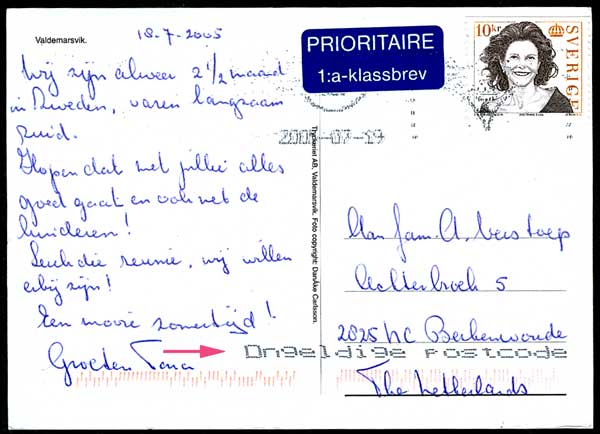 Valdemarsvik.
18-7-2005
Wij zijn alweer 2 1/2 maand
in Zweden, varen langzaam
zuid.
Hopen dat met jullie alles
goed gaat en ook met de
kinderen!
Leuk die reunie, wij willen
erbij zijn!
Een mooie zomertijd!
Groeten
PRIORITAIRE
1:a-klassbrev
10kr
SVERIGE
2005-07-19
Tryckeriet AB, Valdemarsvik. Foto copyright: DanÅke Carlsson.
Aan fam. A. Verstoep
Achterbroek 5
2825 NC Berkenwoude
Ongeldige postcode
The Netherlands